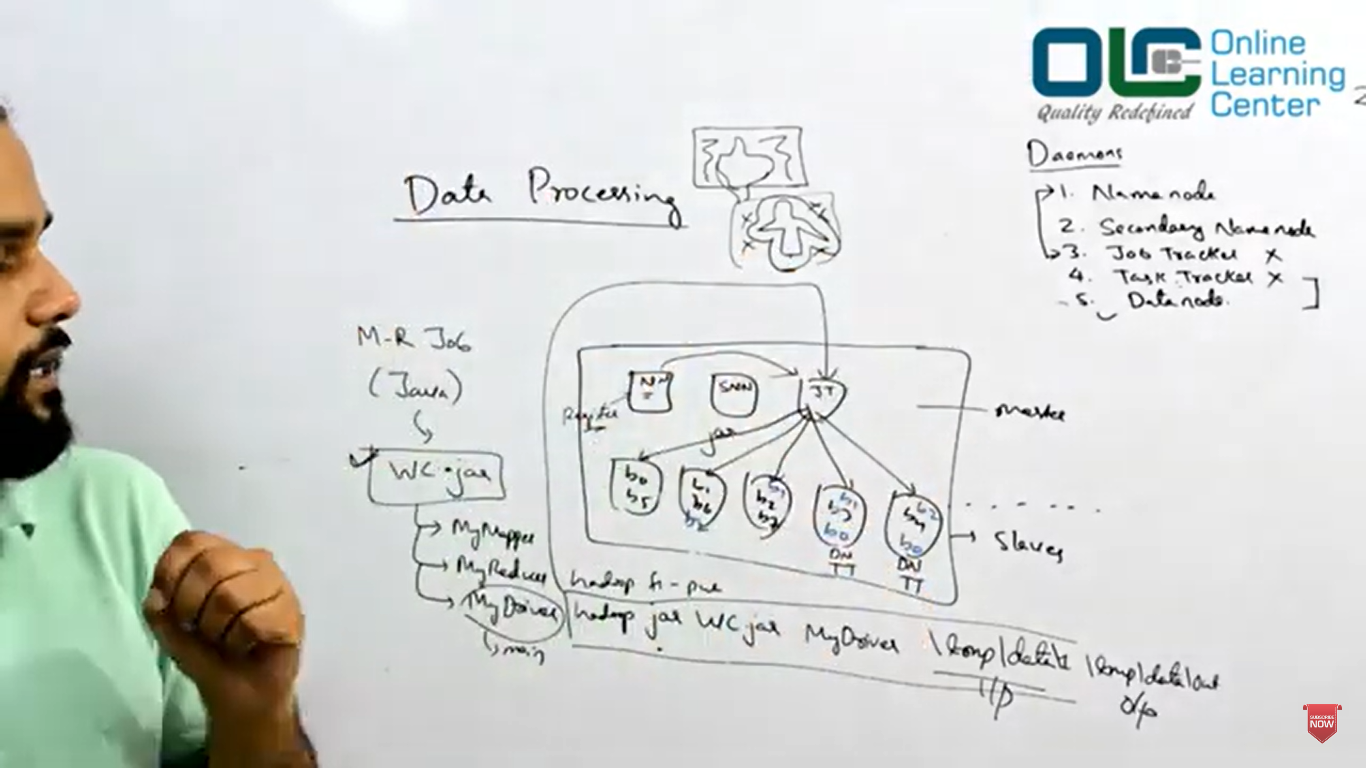 OLC Online
Learning
Center
Quality Redefined
Daemons
1. Name node
2. Secondary Name node
3. Job Tracker x
4. Task Tracker x
5. Data node.
Data Processing
M-R Job
(Java)
WC.jar
MyMapper
MyReducer
MyDriver
main
NN
SNN
JT
Register
jar
Master
b0
b5
b1
b6
b1
b2
b7
b1
b3
b0
b2
b4
b0
DN
TT
DN
TT
Slaves
hadoop fs -put
hadoop jar WC.jar MyDriver \temp\data\ \temp\data\out
I/p
o/p
SUBSCRIBE
NOW